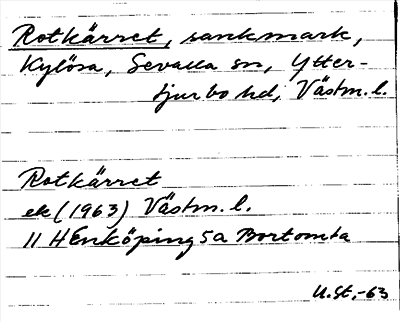 Rotkärret, sankmark,
Kylösa, Sevalla sn, Ytter-
tjurbo hd, Västm. l.
Rotkärret
ek (1963) Västm. l.
11 H Enköping 5a Bortomta
U.St. -63